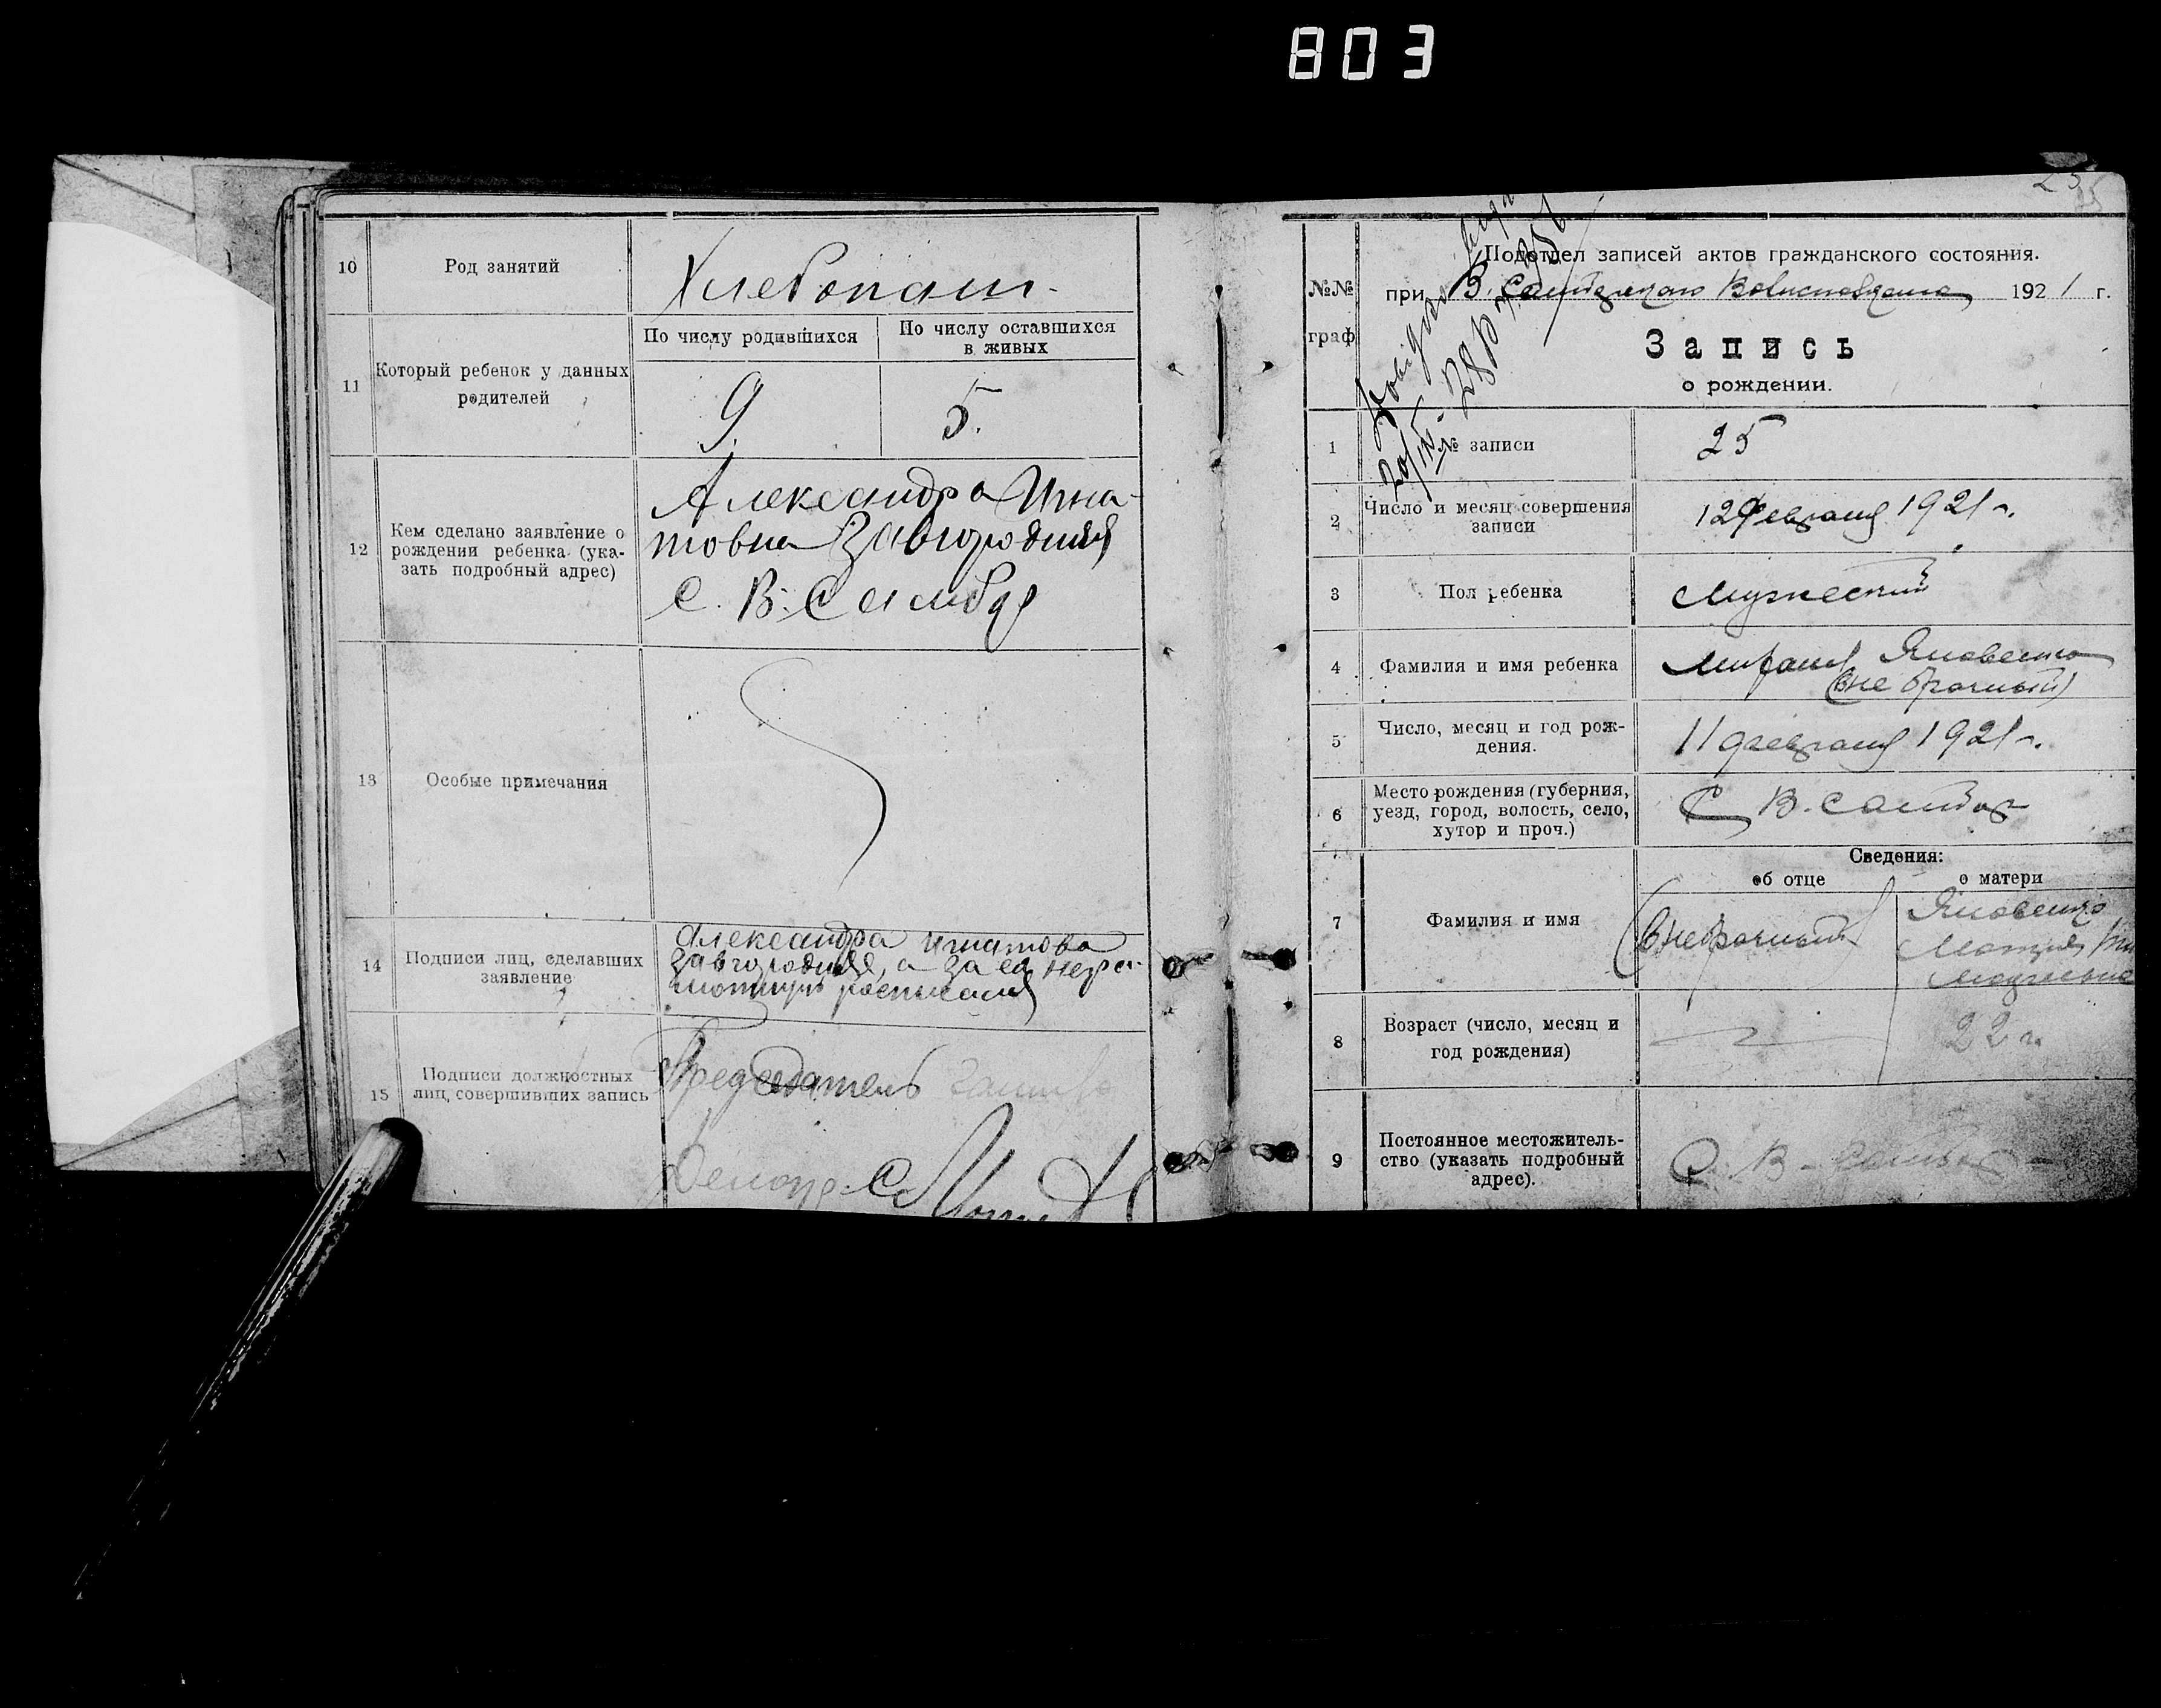 803
10
Род занятий
Хлебопаш.
11
Который ребенок у данных
родителей
По числу родившихся
По числу оставшихся
в живых
9.
5.
12
Кем сделано заявление о
рождении ребенка (ука-
зать подробный адрес)
Александра Игна-
товна Завгородняя
С. В. Самбор
13
Особые примечания
14
Подписи лиц, сделавших
заявление
Александра Игнатова
Завгородняя, а за ея негра-
мотную расписался
15
Подписи должностных
лиц, совершивших запись
Председатель
25
№№
граф
Подотдел записей актов гражданского состояния.
при В. 1921 г.
Запись
о рождении.
1
№ записи
25
2
Число и месяц совершения
записи
12 февраля 1921 г.
3
Пол ребенка
Мужеский
4
Фамилия и имя ребенка
Яковенко
(вне брачный)
5
Число, месяц и год рож-
дения.
11 февраля 1921 г.
6
Место рождения (губерния,
уезд, город, волость, село,
хутор и проч.)
С В. Самбор
7
Фамилия и имя
Сведения:
об отце
о матери
(внебрачный)
Яковенко
8
Возраст (число, месяц и
год рождения)
22 г.
9
Постоянное местожитель-
ство (указать подробный
адрес).
С. В. Самбор